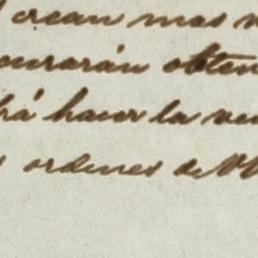 crean mas
curarán obten
rá hacer la ve
s ordenes de VV